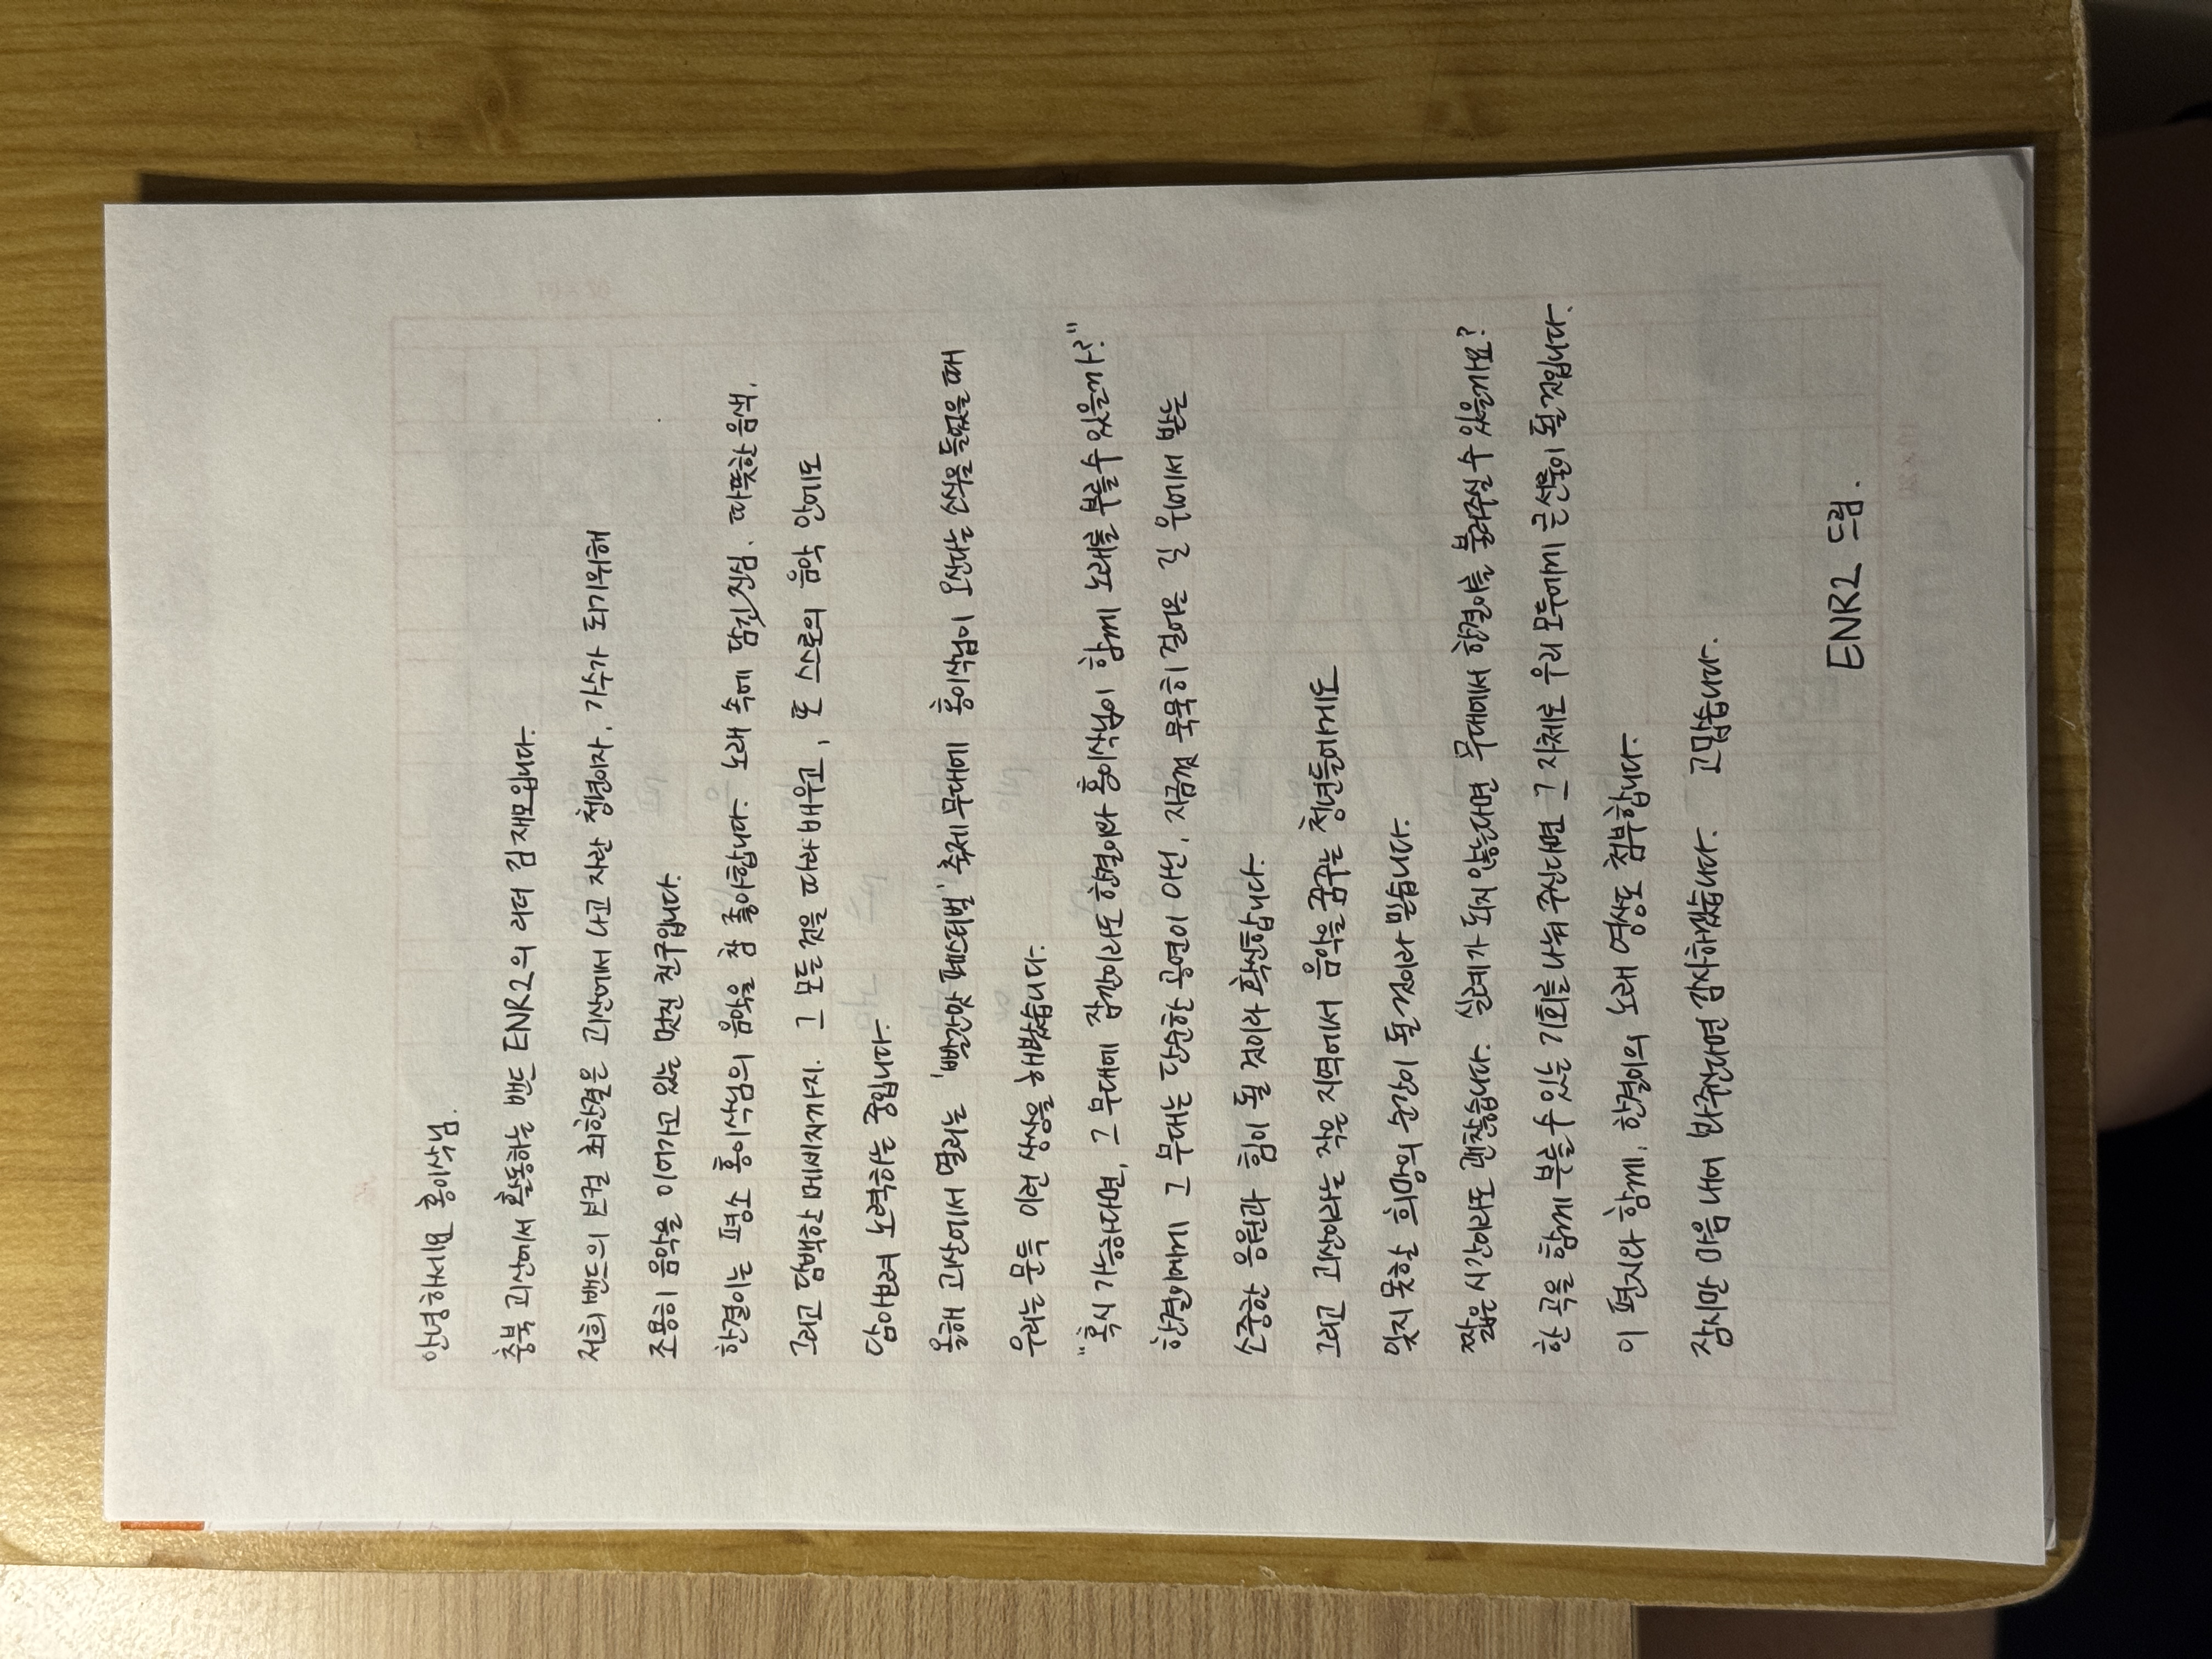 안녕하세요 홍이삭님.
충북 괴산에서 활동하는 밴드 ENR2의 리더 김재모입니다.
저희 밴드의 보컬 최한결은 괴산에서 나고 자란 청년이자, 가수가 되기위해
조용히 음악을 이어가고 있는 멋진 친구입니다.
한결이는 평소 홍이삭님의 음악을 참 좋아합니다. 노래 속에 담긴 진심, 따뜻한 음색,
그리고 담백한 메세지까지. 그 모든 것을 따라 배우고, 또 스스로의 음악 안에도
담아보려 노력하는 중입니다.
올해 괴산에서 열리는 '빨간맛 페스티벌' 축제 무대에 홍이삭님이 오신다는 소식을 들었을 때
우리는 문득 이런 상상을 해봤습니다.
"혹시 가능하다면, 그 무대에 잠깐이라도 한결이와 홍이삭님이 함께 노래를 부를 수 있을까?"
한결이에게 그 무대는 단순한 공연이 아닌, 지금껏 묵묵히 걸어온 길 위에서 받는
소중한 응원과 힘이 될 것이라 확신합니다.
그리고 괴산이라는 작은 지역에서 음악을 꿈꾸는 청년들에게도
잊지 못할 희망의 순간이 될 것이라 믿습니다.
짧은 시간이라도 괜찮습니다. 실례가 되지 않는다면 무대에서 한결이를 불러주실 수 있을까요?
한 곡을 함께 부를 수 있는 기회를 나눠 주신다면 그 자체로 우리 모두에게 큰 선물이 될 것입니다.
이 편지와 함께, 한결이의 노래 영상도 첨부합니다.
잠시만 마음 내어 봐주신다면 감사하겠습니다. 고맙습니다.
ENR2 드림.